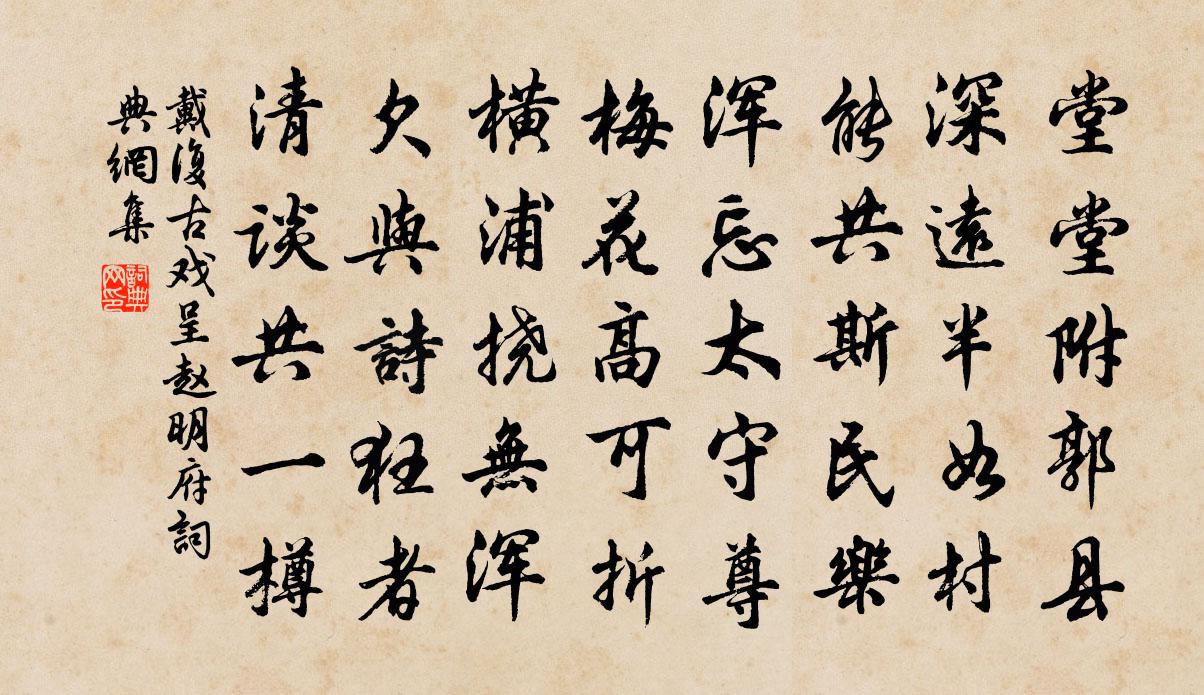 堂堂附郭县
深遠半如村
能共斯民樂
浑忘太守尊
梅花高可折
橫浦挠無浑
久與詩狂者
清談共一樽
戴復古戏呈赵明府詞
典網集
詞典
网印